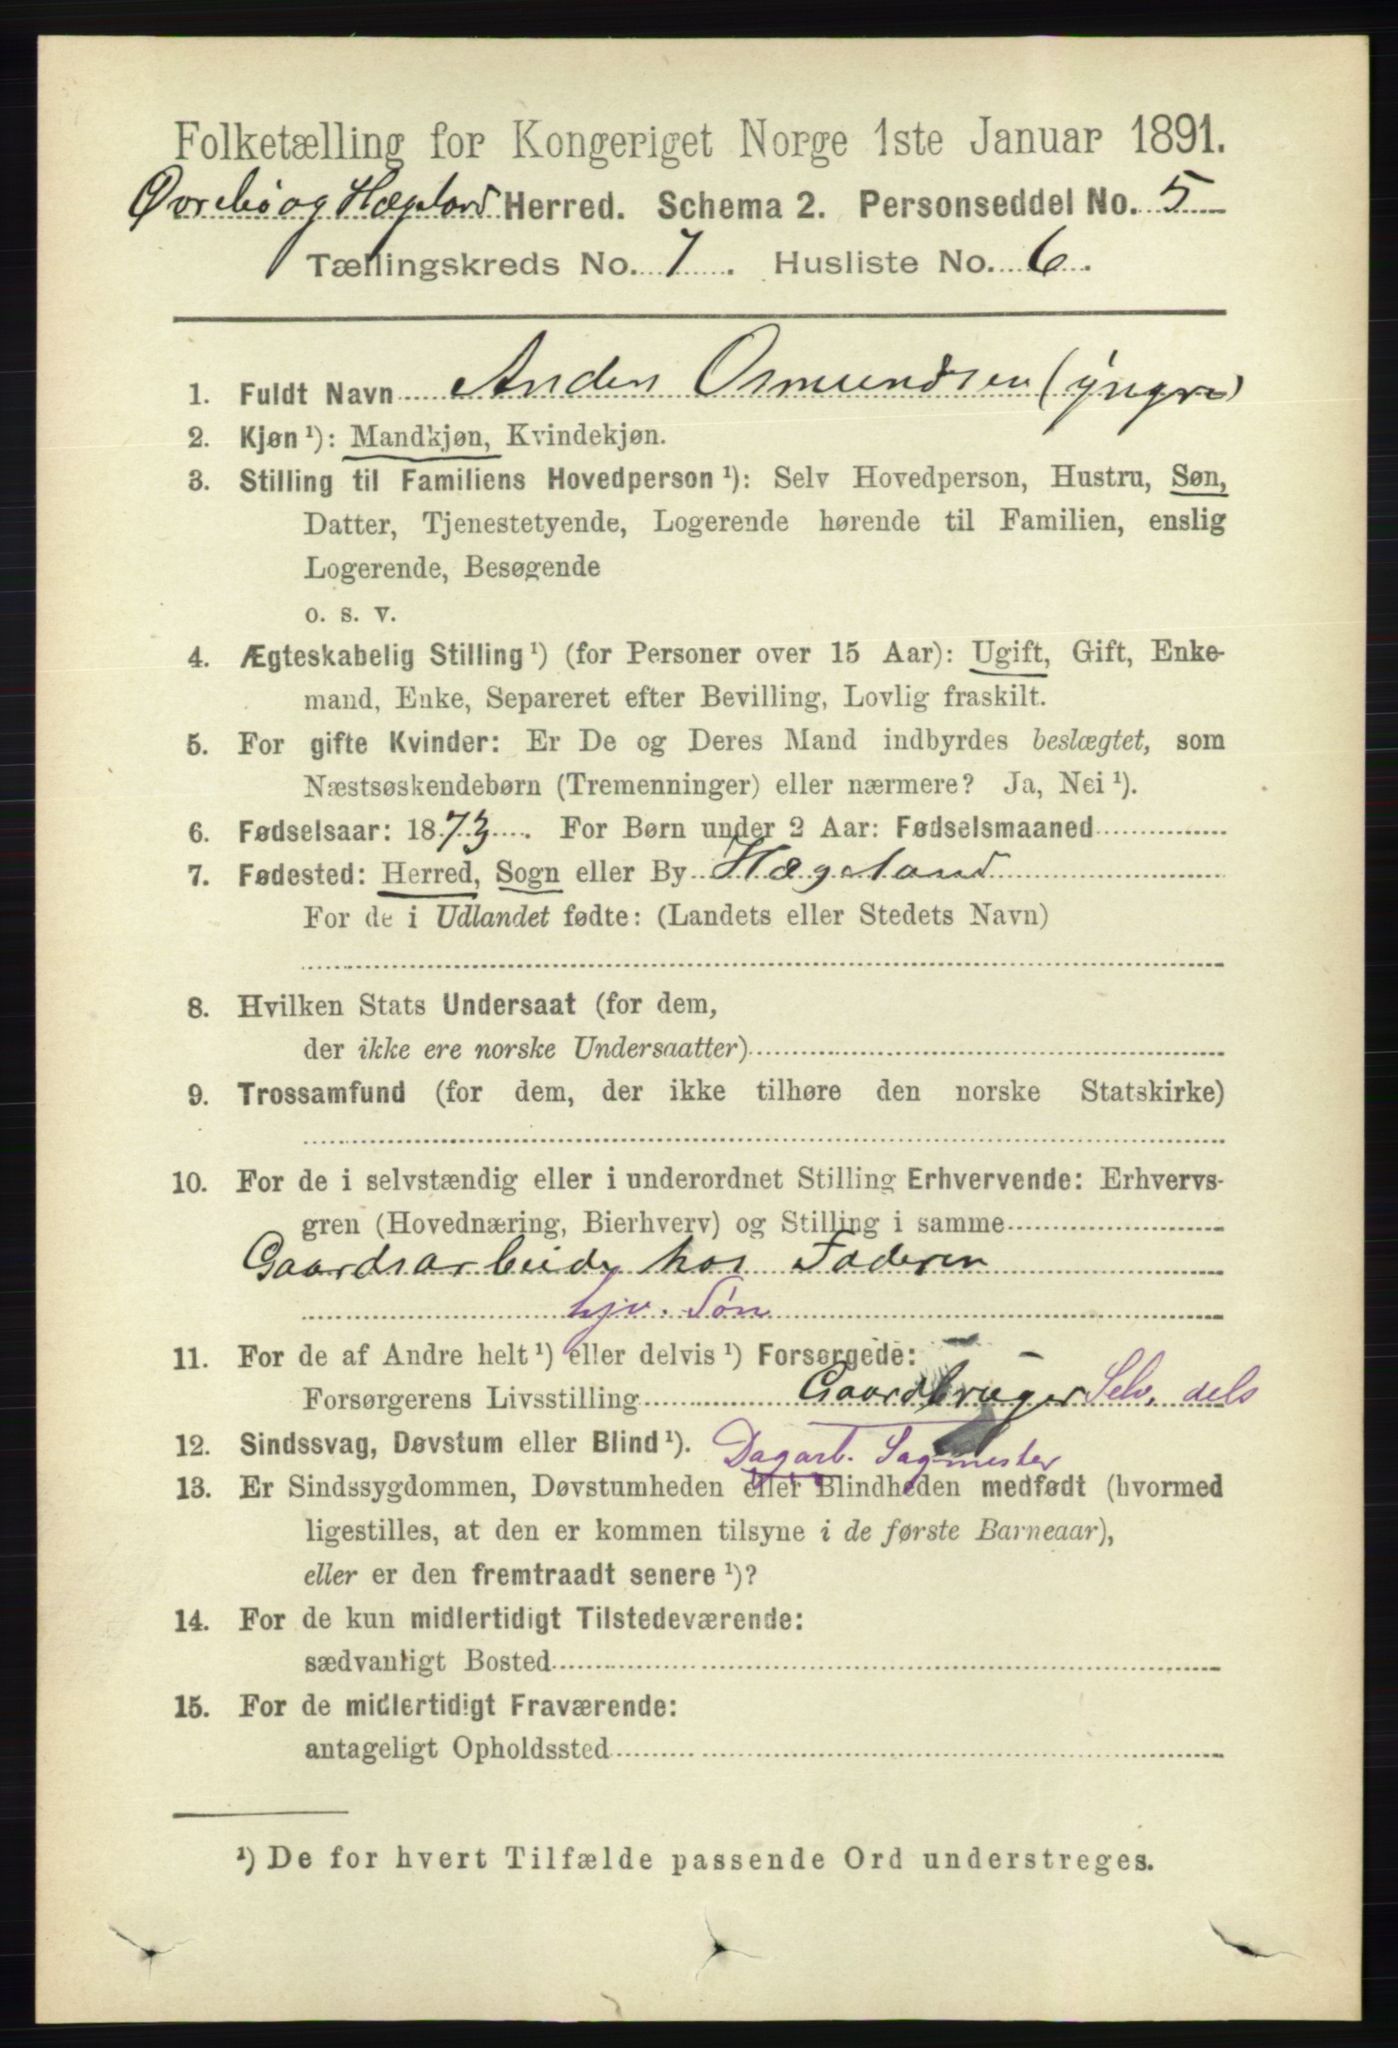 Folketælling for Kongeriget Norge 1ste Januar 1891.
Øvrebø og Hægeland Herred. Schema 2. Personseddel No. 5
Tællingskreds No. 7. Husliste No. 6.
1. Fuldt Navn Anders Osmundsen (yngre)
2. Kjøn ¹): Mandkjøn, Kvindekjøn.
3. Stilling til Familiens Hovedperson ¹): Selv Hovedperson, Hustru, Søn,
Datter, Tjenestetyende, Logerende hørende til Familien, enslig
Logerende, Besøgende
o. s. v.
4. Ægteskabelig Stilling ¹) (for Personer over 15 Aar): Ugift, Gift, Enke-
mand, Enke, Separeret efter Bevilling, Lovlig fraskilt.
5. For gifte Kvinder: Er De og Deres Mand indbyrdes beslægtet, som
Næstsøskendebørn (Tremenninger) eller nærmere? Ja, Nei ¹).
6. Fødselsaar: 1873. For Børn under 2 Aar: Fødselsmaaned
7. Fødested: Herred, Sogn eller By Hægeland
For de i Udlandet fødte: (Landets eller Stedets Navn)
8. Hvilken Stats Undersaat (for dem,
der ikke ere norske Undersaatter)
9. Trossamfund (for dem, der ikke tilhøre den norske Statskirke)
10. For de i selvstændig eller i underordnet Stilling Erhvervende: Erhvervs-
gren (Hovednæring, Bierhverv) og Stilling i samme
Gaardsarbeide hos Faderen
hjv. Søn
11. For de af Andre helt ¹) eller delvis ¹) Forsørgede:
Forsørgerens Livsstilling Gaardbruger Selv, dels
12. Sindssvag, Døvstum eller Blind ¹). Dagarb. Sagmester
13. Er Sindssygdommen, Døvstumheden eller Blindheden medfødt (hvormed
ligestilles, at den er kommen tilsyne i de første Barneaar),
eller er den fremtraadt senere ¹)?
14. For de kun midlertidigt Tilstedeværende:
sædvanligt Bosted
15. For de midlertidigt Fraværende:
antageligt Opholdssted
¹) De for hvert Tilfælde passende Ord understreges.